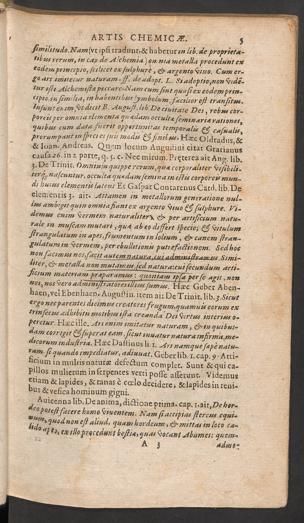 ARTIS CHEMICÆ. 5
similitudo. Nam ut ipsi tradunt, & habetur in lib. de proprieta-
tibus rerum, in cap. de Alchemia; omnia metalla procedunt ex
eodem principio, scilicet ex sulphure, & argento vivo. Cum er-
go ars imitetur naturam. ff. de adopt. L. Si adoptio, non vide-
tur iste Alchemista peccare. Nam cum sint quasi ex eodem prin-
cipio, in similia, in habentibus symbolum, facilior est transitus.
Insunt enim, ut dicit B. August. lib. De civitate Dei, rebus cor-
poreis per omnia elementa quædam occulta seminariæ rationes,
quibus cum data fuerit opportunitas temporalis & causalis,
prorumpunt in species suis modis & finibus. Hæc Oldradus, &
& Ioan. Andreas. Quem locum Augustini citat Gratianus
causa 26. in 2. parte, q. 5. c. Nec mirum. Præterea ait Aug. lib.
3. De Trinit. Omnium quippe rerum, quæ corporaliter visibili-
terq; nascuntur, occulta quædam semina in istis corporeis mun-
di huius elementis latent. Et Gaspar Contarenus Card. lib. De
elementis 3. ait: Attamen in metallorum generatione nul-
lus ambigit quin omnia fiant ex argento vivo & sulphure. Vi-
demus enim vermem naturaliter, & per artificium natu-
rale in muscam mutari, quæ ab eo differt specie; & vitulum
strangulatum in apes, frumentum in lolium, & canem stran-
gulatum in vermem, per ebullitionis putrefactionem. Sed hoc
non facimus nos: facit autem natura, cui administramus. Simi-
liter, & metalla non mutamus, sed natura: cui secundum arti-
ficium materiam præparamus: quoniam ipsa per se agit, non
nos, nos vero administratores illius sumus. Hæc Geber. Aben-
haen, vel Ebenhaen. Augustin. item ait De Trinit. lib. 3. Sicut
ergo nec parentes dicimus creatores frugum, quamvis eorum ex
trinsecus adhibitis motibus ista creanda Dei virtus interius o-
peretur. Hæc ille. Ars enim imitatur naturam, & in quibus-
dam corrigit & superat eam, sicut iuvatur natura infirma, me-
dicorum industria. Hæc Dastinus li. 1. Ars namque sæpe natu-
ram, si quando impediatur, adiuvat. Geber lib. 1. cap. 9. Arti-
ficium in multis naturæ defectum complet. Sunt & qui ca-
pillos mulierum in serpentes verti posse asserunt. Videmus
etiam & lapides, & ranas è cœlo decidere, & lapides in reni-
bus & vesica hominum gigni.
Avicenna lib. De anima, dictione prima. cap. 1. ait, De hor-
deo potest facere homo viventem. Nam si accipias stercus equi-
num, quod non est aliud, quam hordeum, & mittas in loco ca-
lido apto, ex illo procedunt bestiæ, quas vocant Abumes: quem-
A 3 admo-